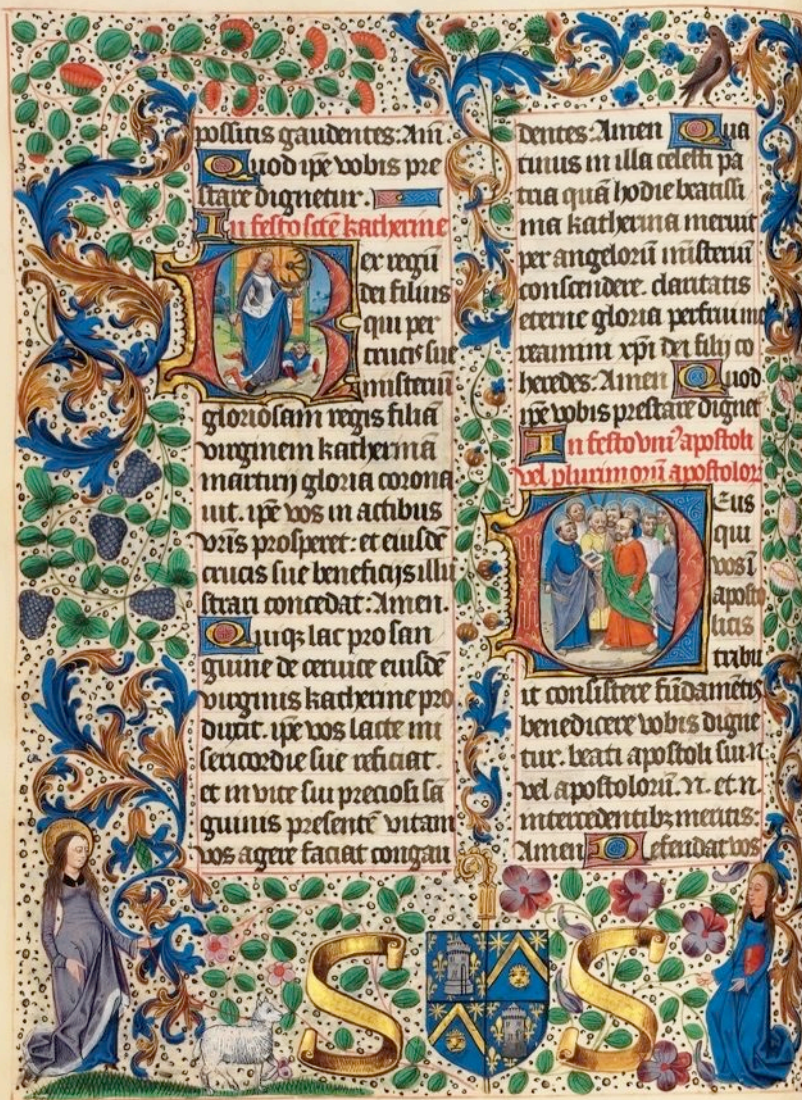 possitis gaudentes. Am̄
Quod ip̄e vobis pre
stare dignetur.
In festo sc̄te katherine
Rex regū
dei filius
qui per
crucis sue
misteriū
gloriosam regis filiā
virginem katherinā
martirij gloria corona
uit. ip̄e vos in actibus
vr̄is prosperet: et eiusdē
crucis sue beneficijs illu
strari concedat: Amen.
Quiqꝫ lac pro san
guine de ceruice eiusdē
virginis katherine pro
duxit. ip̄e vos lacte mi
sericordie sue reficiat.
et in vite sui preciosi sā
guinis presentē vitam
vos agere faciat congau
dentes. Amen Qua
tinus in illa celesti pa
tria quā hodie beatissi
ma katherina meruit
per angelorū misteriū
conscendere. claritatis
eterne gloria perfrui me
reamini xp̄i dei filij co
heredes: Amen Quod
ip̄e vobis prestare dignet
In festo vniꝰ apostoli
vel plurimorū apostolor
Deus
qui
vos ī
aposto
licis
tribu
it consistere fūdamētis
benedicere vobis digne
tur. beati apostoli sui n
vel apostolorū. n. et n.
intercedentibꝫ meritis:
Amen Defendat vos